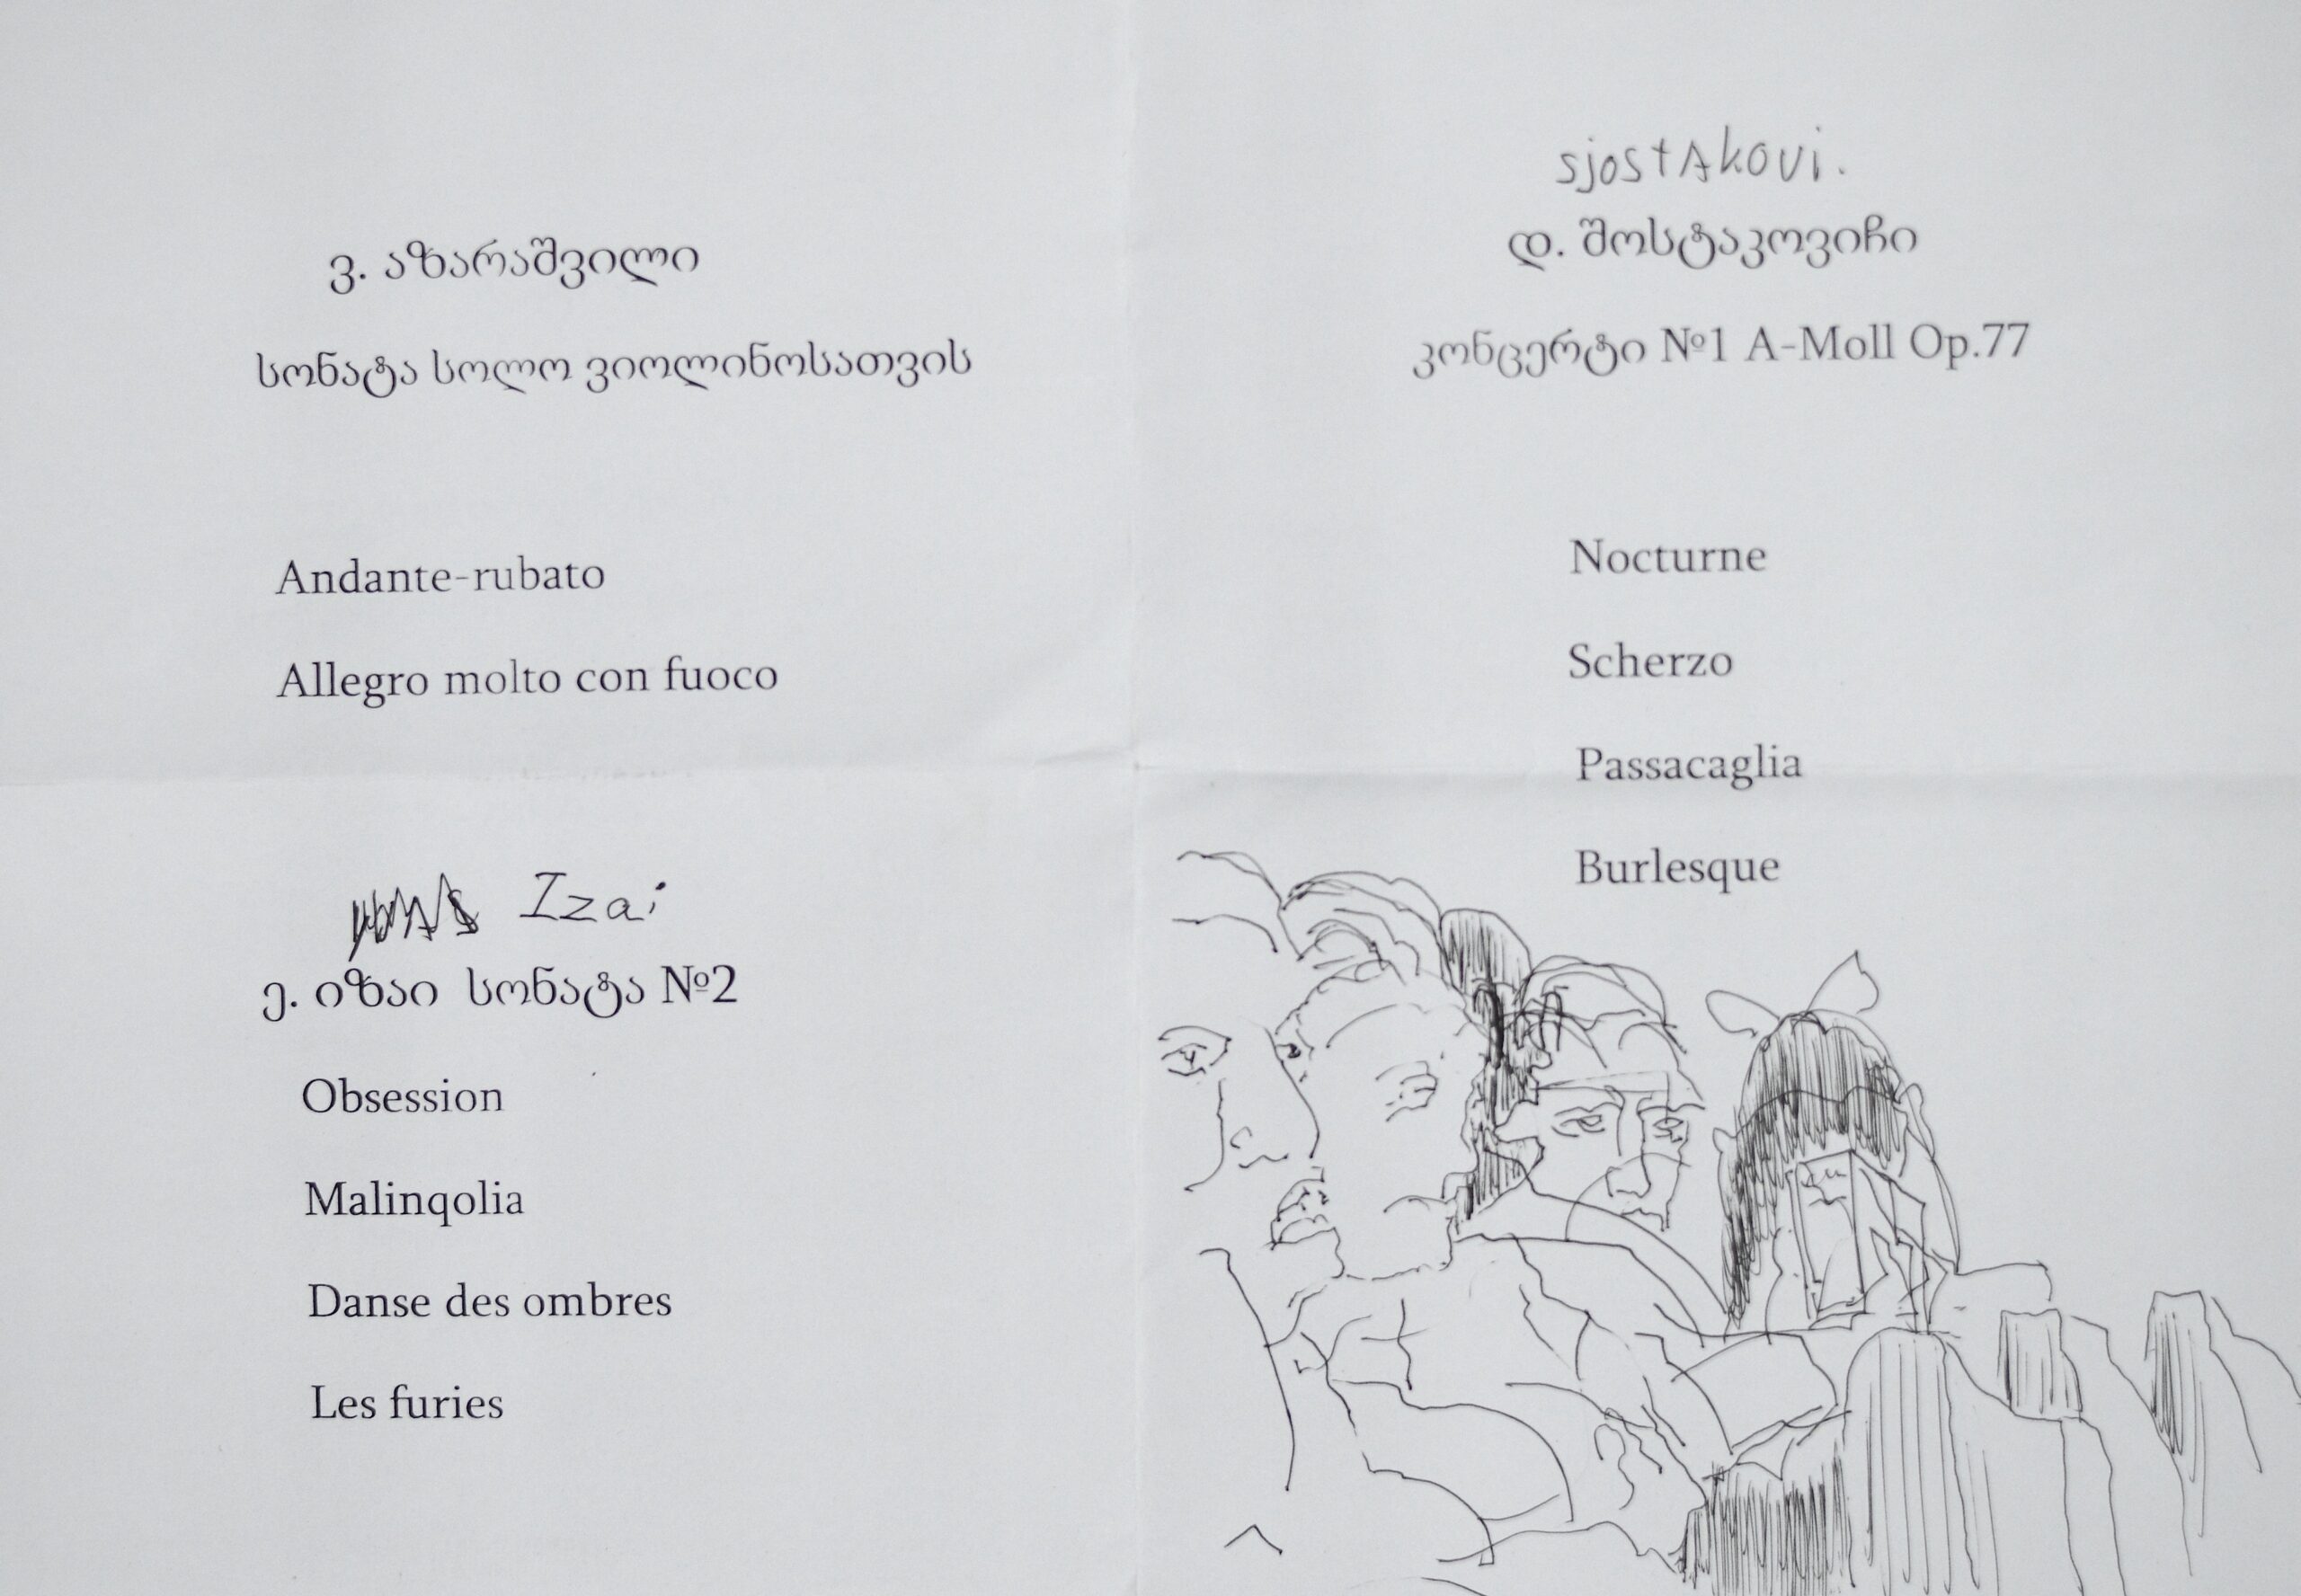 ვ. აზარაშვილი
სონატა სოლო ვიოლინოსათვის
Andante-rubato
Allegro molto con fuoco
Izai
ე. იზაი სონატა №2
Obsession
Malinqolia
Danse des ombres
Les furies
sjostAkovi.
დ. შოსტაკოვიჩი
კონცერტი №1 A-Moll Op.77
Nocturne
Scherzo
Passacaglia
Burlesque